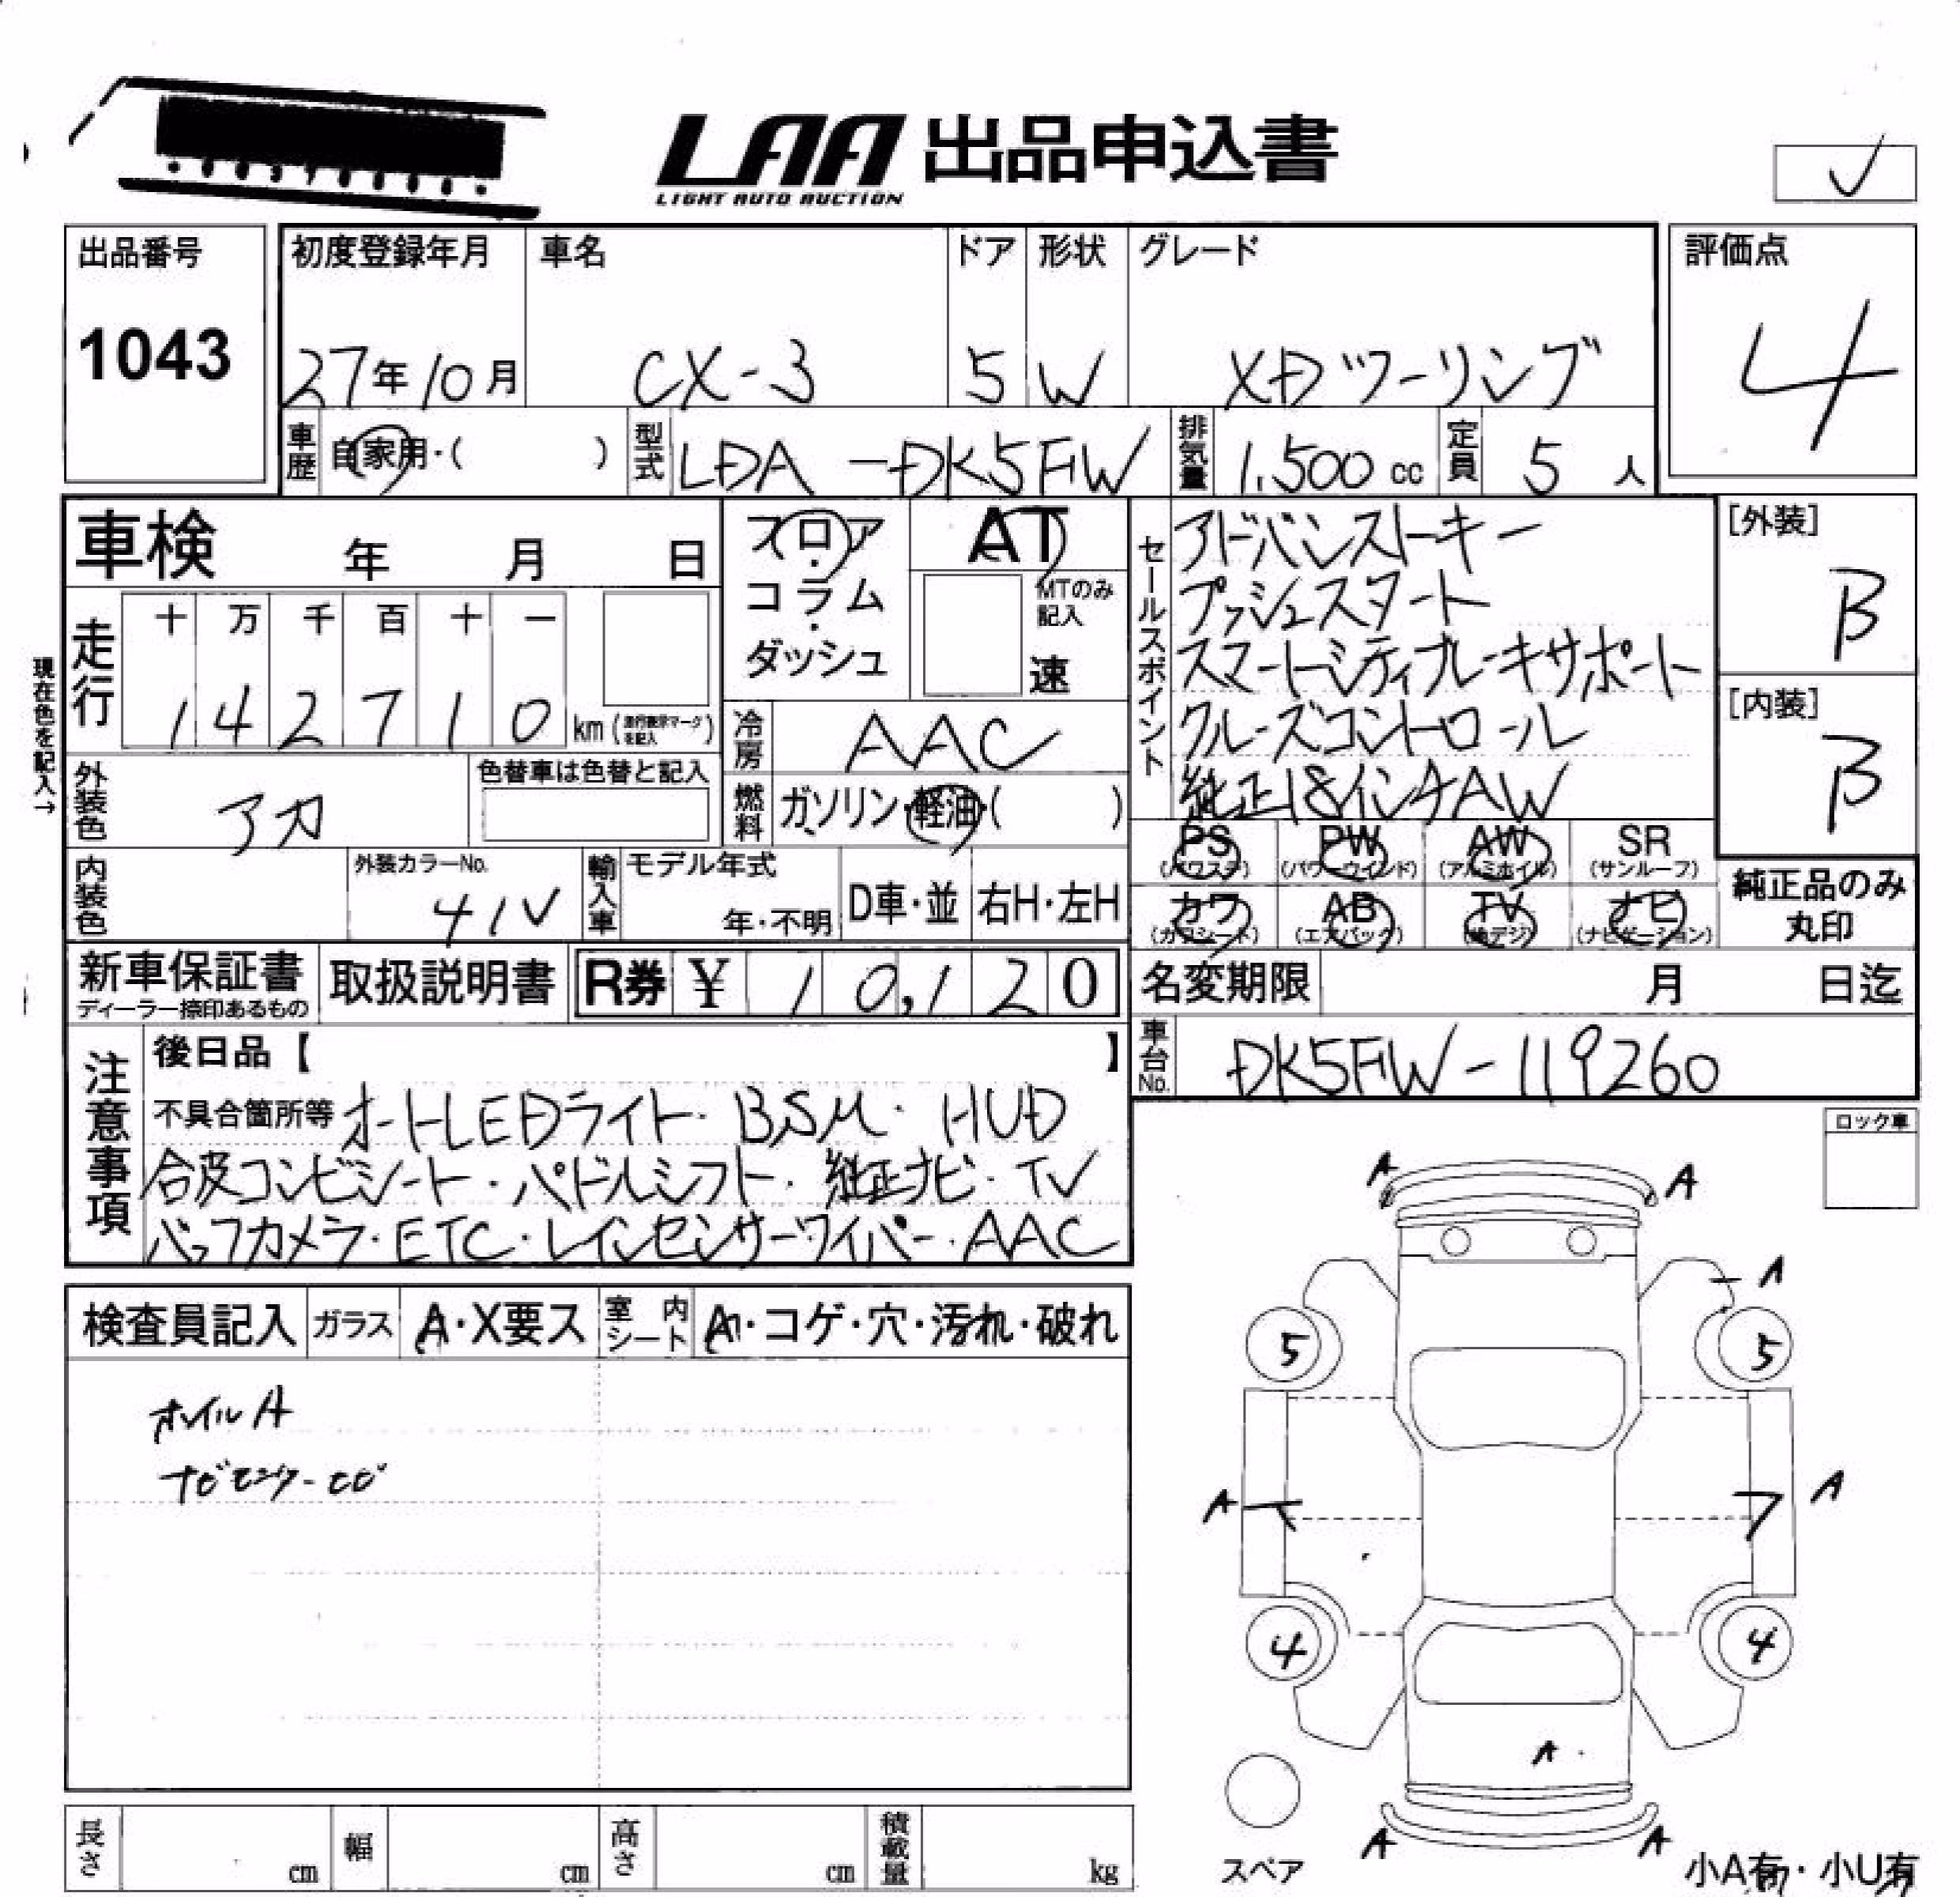 LAA 出品申込書
LIGHT AUTO AUCTION
出品番号
1043
初度登録年月
27年10月
車名
CX-3
ドア
5
形状
W
グレード
XDツーリング
評価点
4
車歴
自家用・( )
型式
LDA-DK5FW
排気量
1,500 cc
定員
5 人
車検 年 月 日
フロア・コラム・ダッシュ
AT
MTのみ記入
速
セールスポイント
アドバンストキー
プッシュスタート
スマートシティブレーキサポート
クルーズコントロール
純正18インチAW
[外装]
B
[内装]
B
現在色を記入→
走行
十 万 千 百 十 一
1 4 2 7 1 0 km (走行表示マークを記入)
冷房
AAC
外装色
アカ
色替車は色替と記入
燃料
ガソリン・軽油・( )
PS (パワステ)
PW (パワーウインド)
AW (アルミホイル)
SR (サンルーフ)
カワ (カワシート)
AB (エアバック)
TV (地デジ)
ナビ (ナビゲーション)
純正品のみ丸印
内装色
外装カラーNo.
41V
輸入車
モデル年式
年・不明
D車・並
右H・左H
新車保証書
ディーラー捺印あるもの
取扱説明書
R券 ¥ 10,120
名変期限 月 日迄
注意事項
後日品【 】
車台No.
DK5FW-119260
不具合箇所等 オートLEDライト・BSM・HUD
合皮コンビシート・パドルシフト・純正ナビ・TV
バックカメラ・ETC・レインセンサーワイパー・AAC
ロック車
検査員記入
ガラス
A・X要ス
室内シート
A・コゲ・穴・汚れ・破れ
ホイルA
ナビモニター
A A
A
5 5
A A
4 4
A
A A
スペア
小A有・小U有
長さ cm
幅 cm
高さ cm
積載量 kg